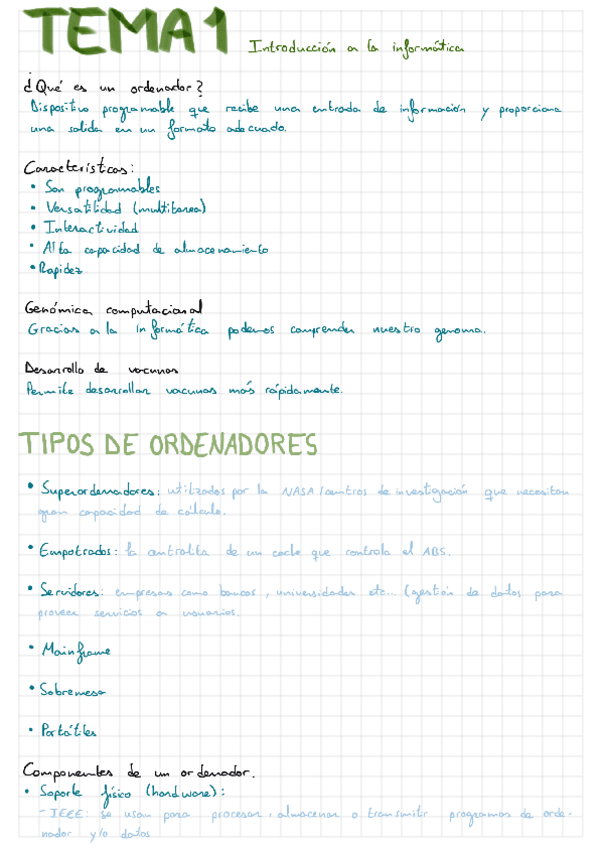 TEMA 1 Introducción a la informática
¿Qué es un ordenador?
Dispositivo programable que recibe una entrada de información y proporciona
una salida en un formato adecuado.
Características:
• Son programables
• Versatilidad (multitarea)
• Interactividad
• Alta capacidad de almacenamiento
• Rapidez
Genómica computacional
Gracias a la informática podemos comprender nuestro genoma.
Desarrollo de vacunas
Permite desarrollar vacunas más rápidamente.
TIPOS DE ORDENADORES
• Superordenadores: utilizados por la NASA/centros de investigación que necesitan
gran capacidad de cálculo.
• Empotrados: la centralita de un coche que controla el ABS.
• Servidores: empresas como bancos, universidades etc (gestión de datos para
proveer servicios a usuarios.
• Mainframe
• Sobremesa
• Portátiles
Componentes de un ordenador.
• Soporte físico (hardware):
- IEEE: se usan para procesar, almacenar o transmitir programas de orde-
nador y/o datos